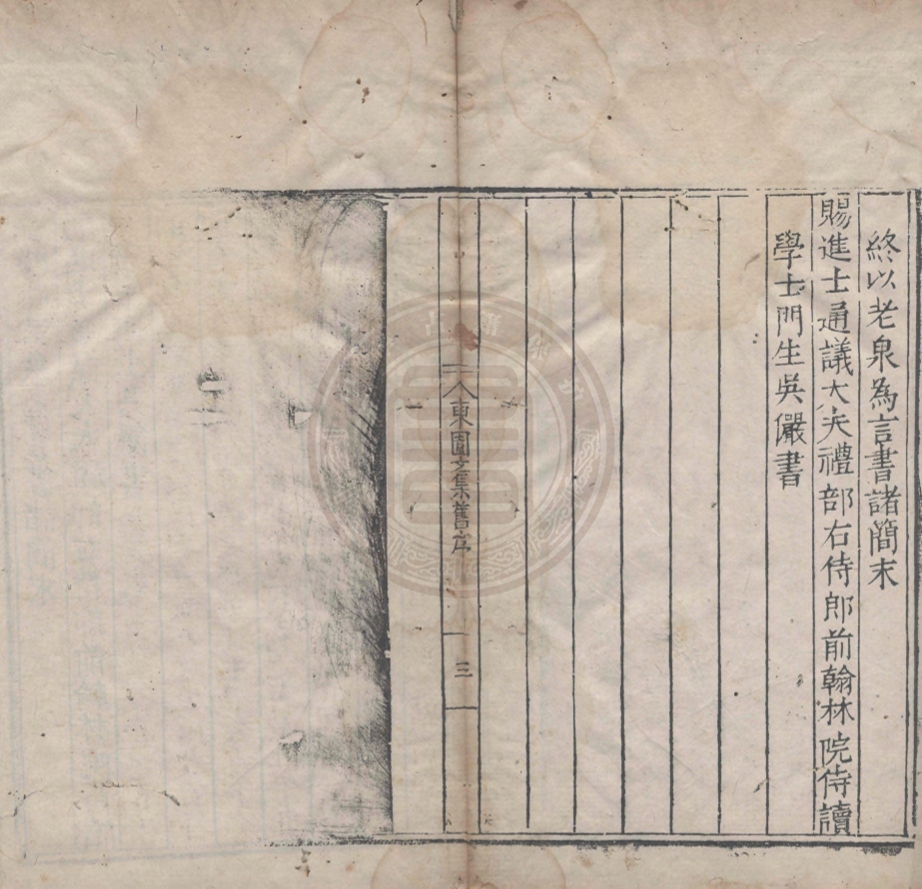 終以老泉為言書諸簡末
賜進士通議大夫禮部右侍郎前翰林院侍讀
學士門生吳儼書
東園文集舊序
三